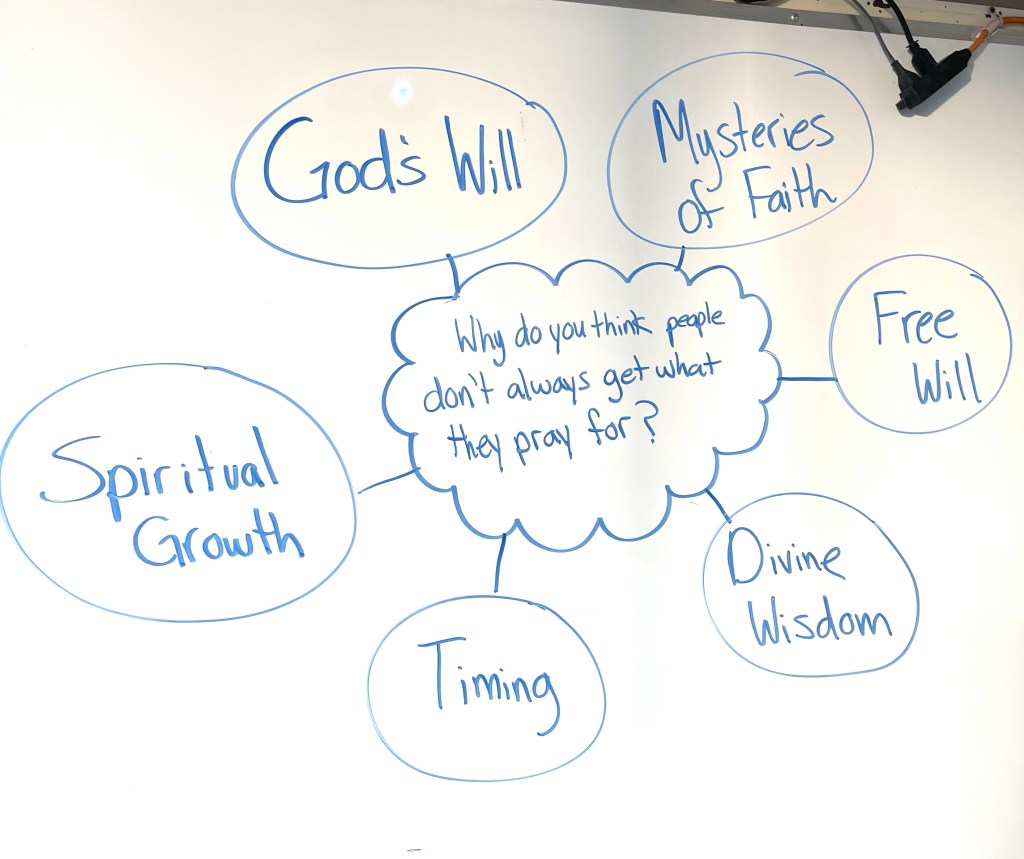 God's Will
Mysteries
of Faith
Why do you think people
don't always get what
they pray for?
Free
Will
Spiritual
Growth
Divine
Wisdom
Timing